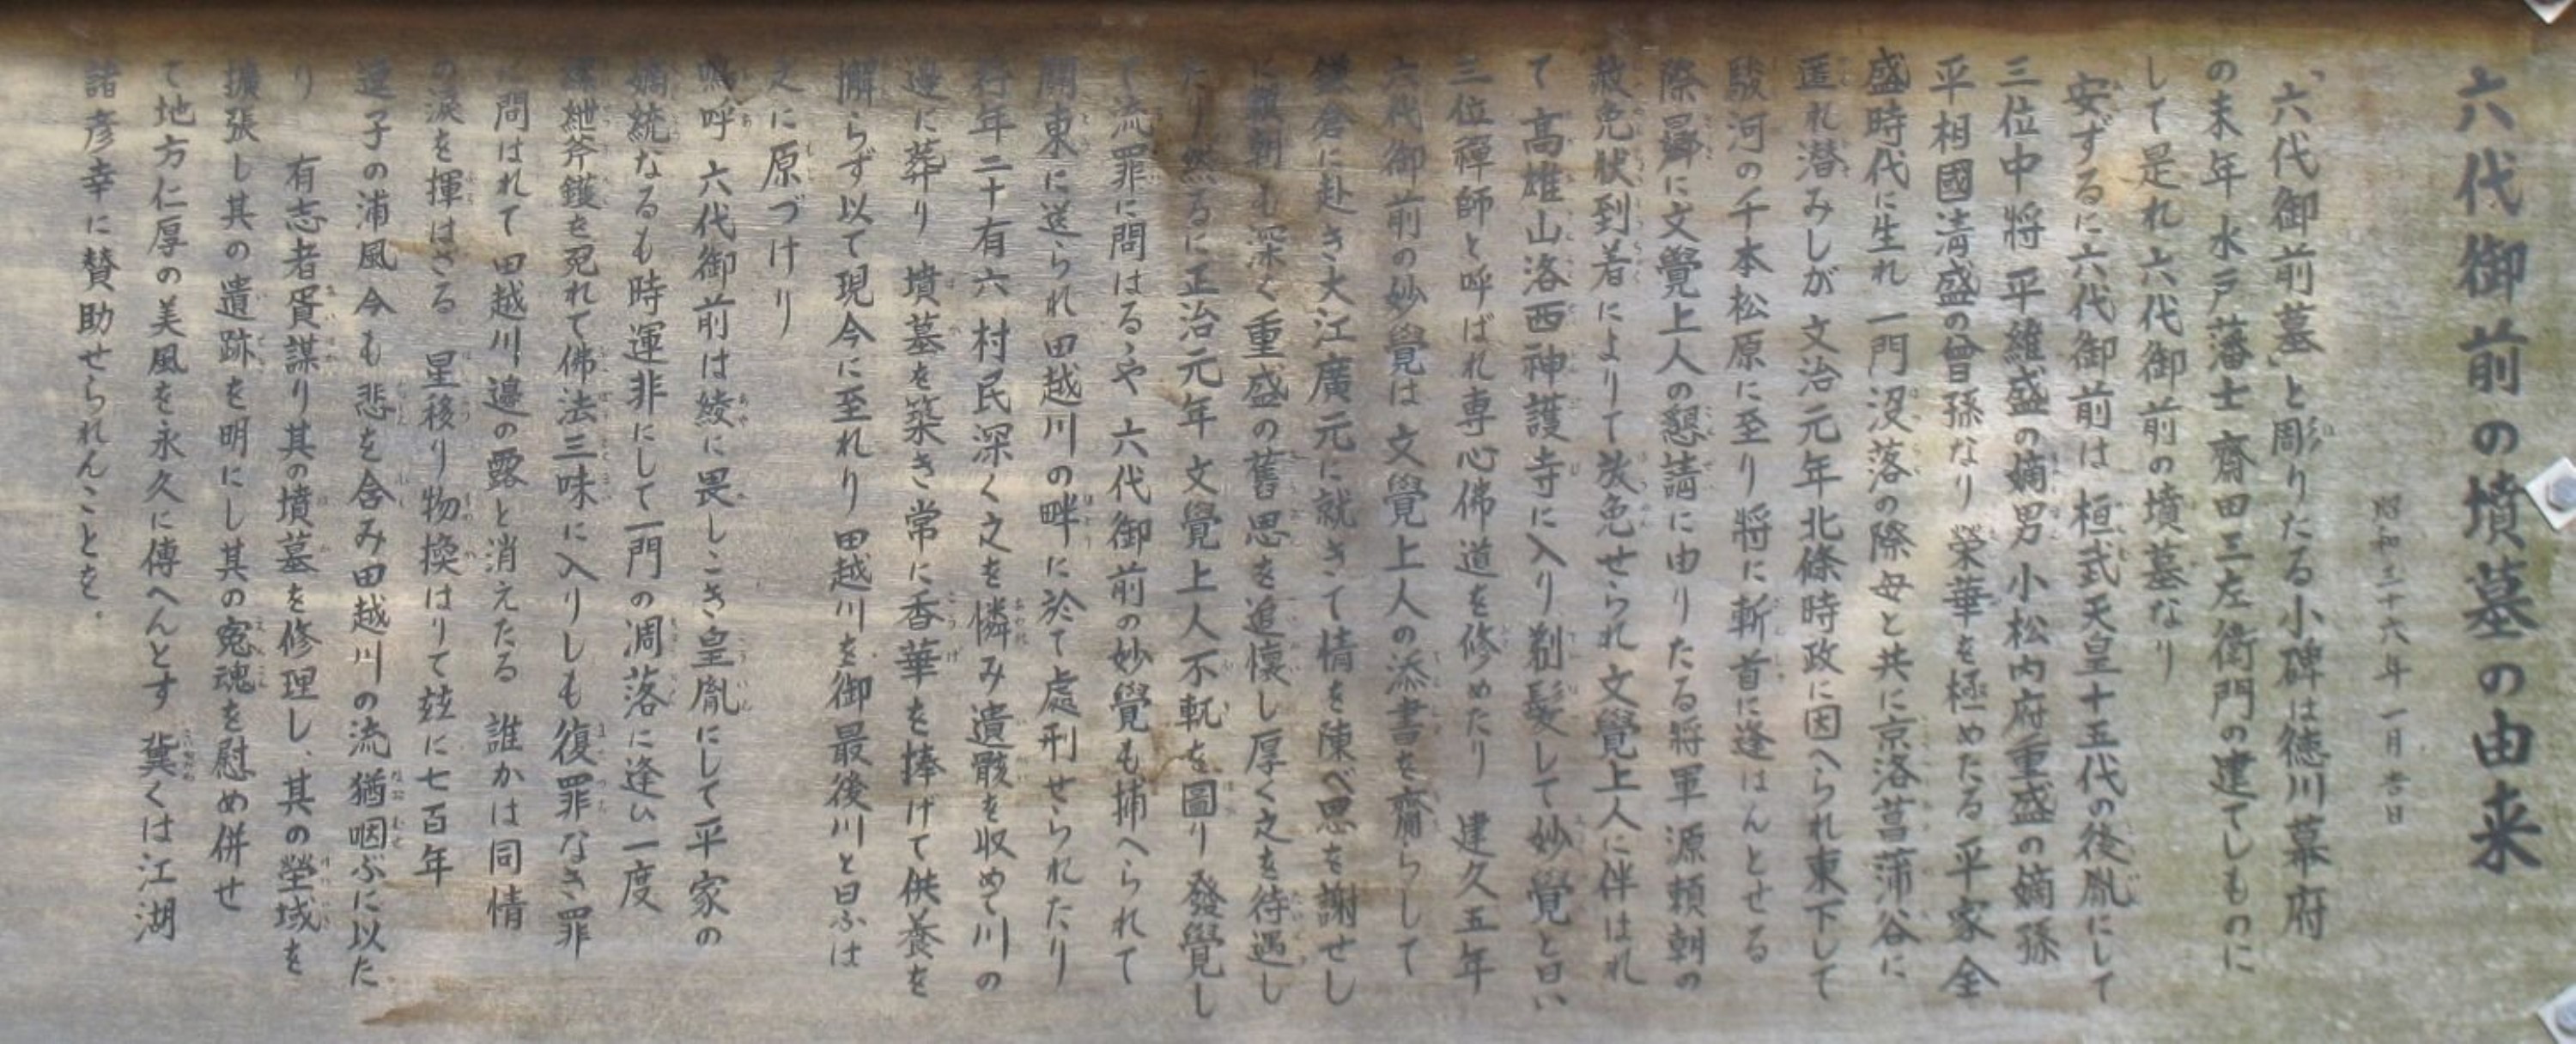 六代御前の墳墓の由来
昭和三十六年一月吉日
「六代御前墓」と彫りたる小碑は徳川幕府
の末年水戸藩士齋田三左衛門の建てしものに
して是れ六代御前の墳墓なり
安ずるに六代御前は桓武天皇十五代の後胤にして
三位中将平維盛の嫡男小松内府重盛の嫡孫
平相國清盛の曾孫なり 榮華を極めたる平家全
盛時代に生れ一門没落の際母と共に京洛菖蒲谷に
匿れ潜みしが文治元年北條時政に因へられ東下して
駿河の千本松原に至り将に斬首に逢はんとせる
際に文覺上人の懇請に由りたる将軍源頼朝の
赦免状到着によりて放免せられ文覺上人に伴はれ
て高雄山洛西神護寺に入り剃髪して妙覺と曰い
三位禪師と呼ばれ専心佛道を修めたり 建久五年
六代御前の妙覺は文覺上人の添書を齎らして
鎌倉に赴き大江廣元に就きて情を陳べ恩を謝せし
に頼朝も深く重盛の舊恩を追懐し厚く之を待遇し
たり然るに正治元年文覺上人不軌を圖り發覺し
て流罪に問はるゝや六代御前の妙覺も捕へられて
關東に送られ田越川の畔に於て處刑せられたり
行年二十有六村民深く之を憐み遺骸を収めて川の
邊に葬り墳墓を築き常に香華を捧げて供養を
懈らず以て現今に至れり田越川を御最後川と曰ふは
之に原づけり
嗚呼六代御前は綾に畏しこき皇胤にして平家の
嫡統なるも時運非にして一門の凋落に逢ひ一度
縲紲斧鑊を免れて佛法三味に入りしも復罪なき罪
に問はれて田越川邊の露と消えたる 誰かは同情
の涙を揮はざる 星移り物換はりて玆に七百年
逗子の浦風今も悲を含み田越川の流猶咽ぶに以た
り 有志者胥謀り其の墳墓を修理し、其の塋域を
擴張し其の遺跡を明にし其の寃魂を慰め併せ
て地方仁厚の美風を永久に傳へんとす 冀くは江湖
諸彦幸に賛助せられんことを.